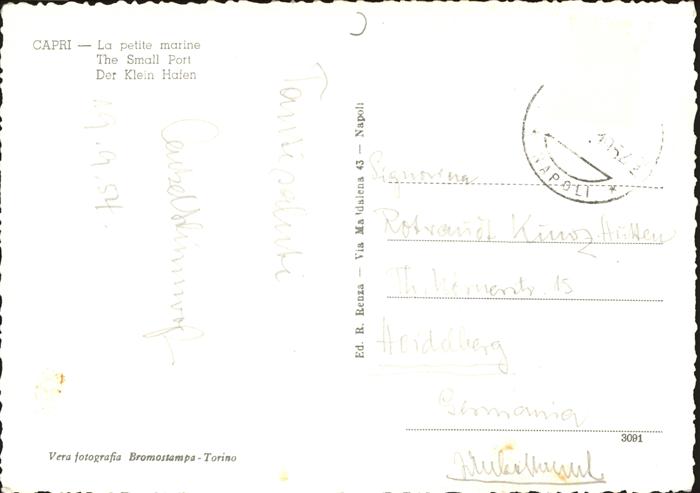 CAPRI — La petite marine
The Small Port
Der Klein Hafen
19.9.54.
Tanti saluti
Ed. R. Renza — Via Maddalena 43 — Napoli
NAPOLI
Signorina
Rotraudt Kunoz-Hütten
Th. Körnerstr. 15
Heidelberg
Germania
3091
Vera fotografia Bromostampa - Torino